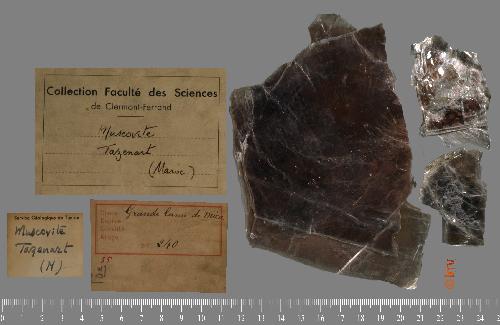 Collection Faculté des Sciences
de Clermont-Ferrand
Muscovite
Tazenart
(Maroc)
Service Géologique de Tunisie
Muscovite
Tazenart
(M)
Grande lame de Mica
240
35
0 1 2 3 4 5 6 7 8 9 10 11 12 13 14 15 16 17 18 19 20 21 22 23 24